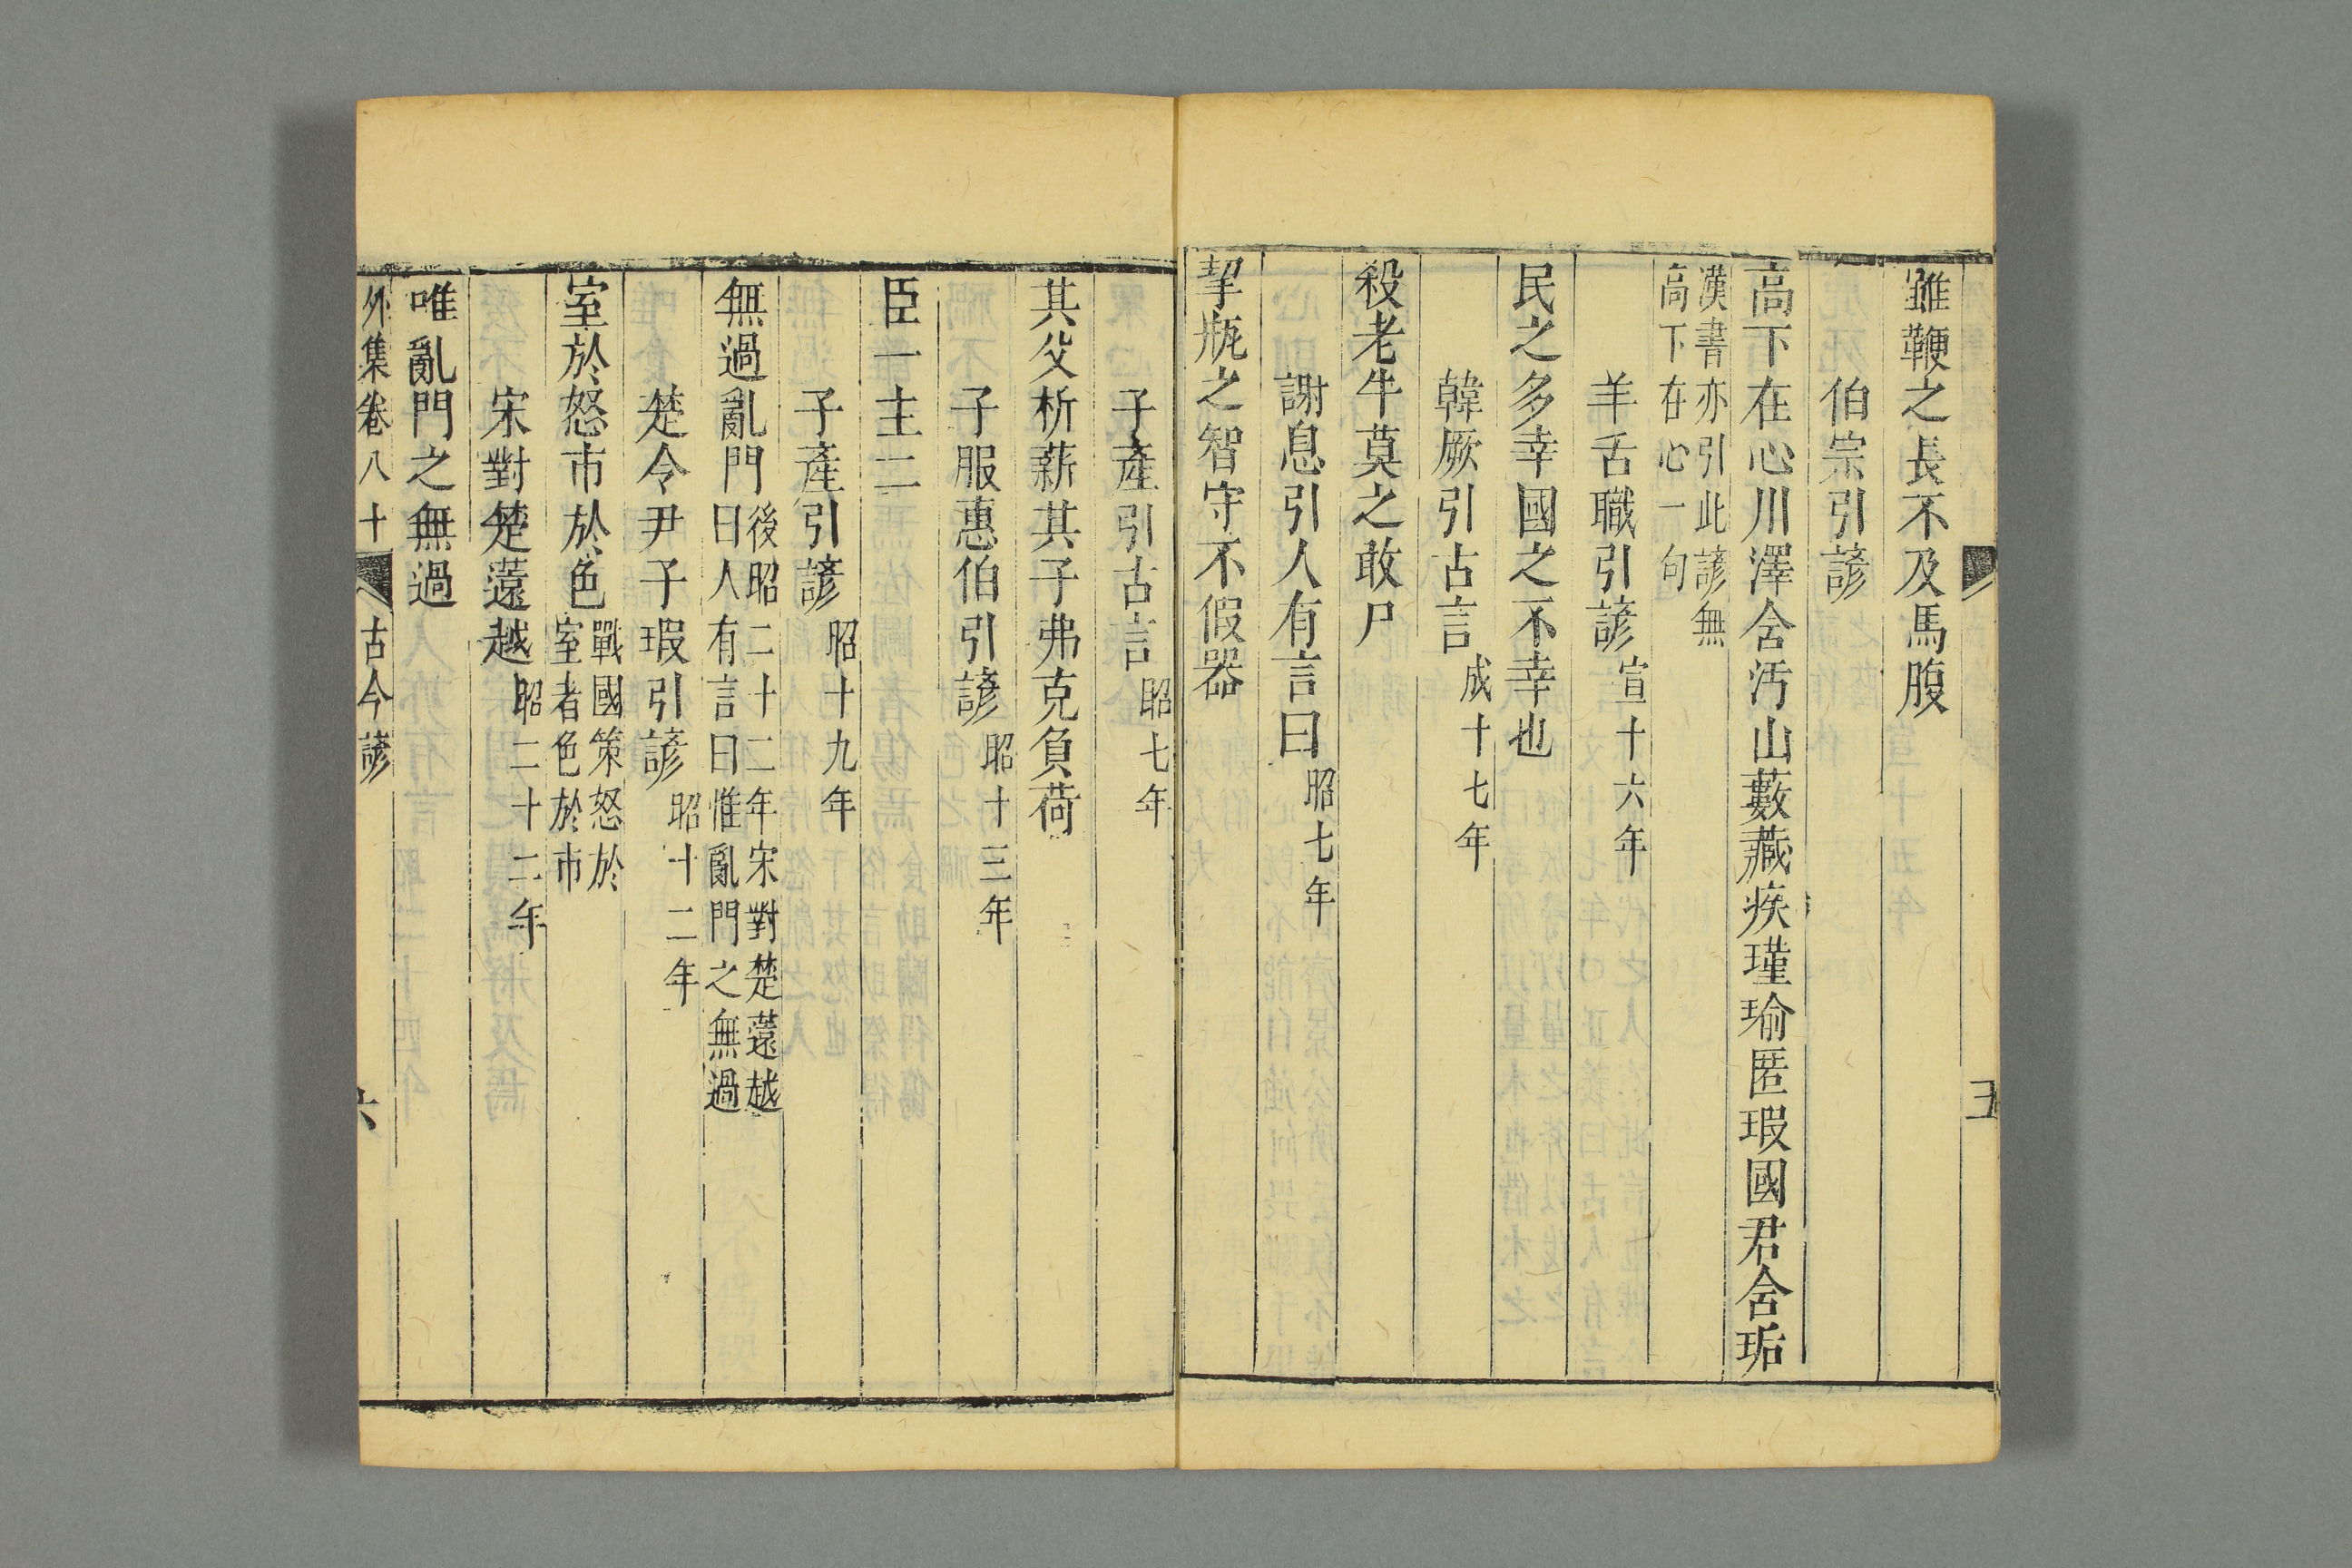 五
雖鞭之長不及馬腹
伯宗引諺
高下在心川澤舍汚山藪藏疾瑾瑜匿瑕國君舍垢
漢書亦引此諺無
高下在心一句
羊舌職引諺宣十六年
民之多幸國之不幸也
韓厥引古言成十七年
殺老牛莫之敢尸
謝息引人有言曰昭七年
挈瓶之智守不假器
子產引古言昭七年
其父析薪其子弗克負荷
子服惠伯引諺昭十三年
臣一主二
子產引諺昭十九年
無過亂門後昭二十二年宋對楚薳越
曰人有言曰惟亂門之無過
楚令尹子瑕引諺昭十二年
室於怒市於色戰國策怒於
室者色於市
宋對楚薳越昭二十二年
唯亂門之無過
外集卷八十 古今諺 六